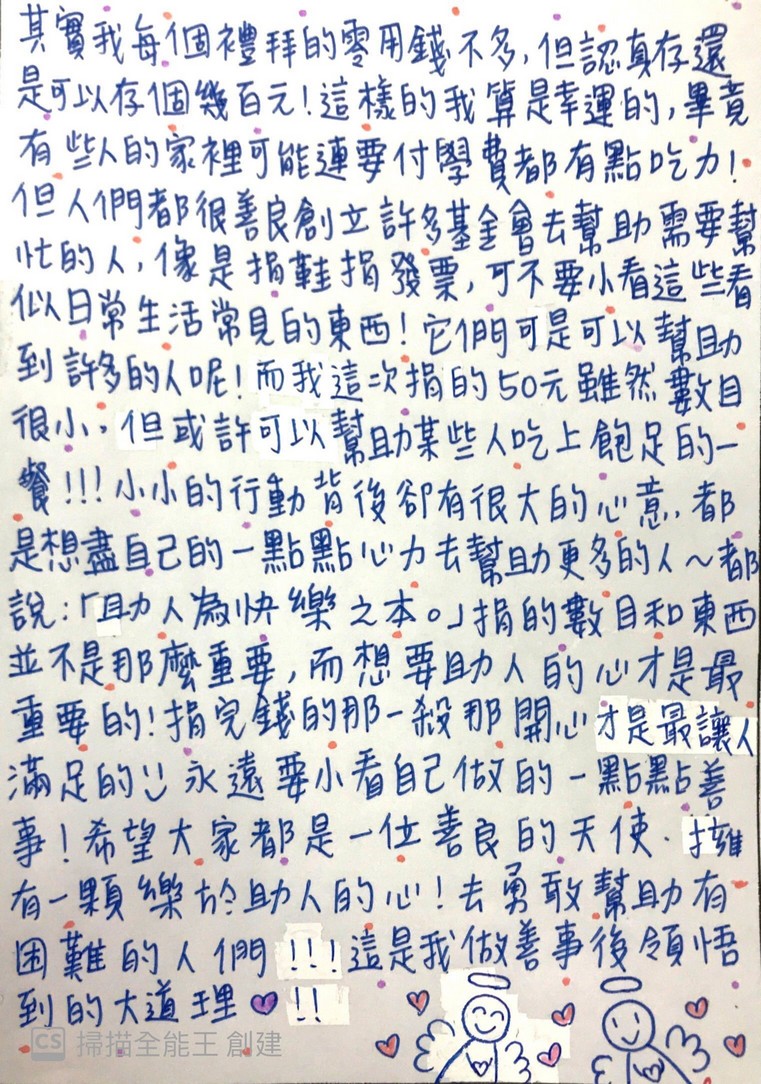 其實我每個禮拜的零用錢不多,但認真存還
是可以存個幾百元!這樣的我算是幸運的,畢竟
有些人的家裡可能連要付學費都有點吃力!
但人們都很善良創立許多基金會去幫助需要幫
忙的人,像是捐鞋捐發票,可不要小看這些看
似日常生活常見的東西!它們可是可以幫助
到許多的人呢!而我這次捐的50元雖然數目
很小,但或許可以幫助某些人吃上飽足的一
餐!!!小小的行動背後卻有很大的心意,都
是想盡自己的一點點心力去幫助更多的人~都
說:「助人為快樂之本。」捐的數目和東西
並不是那麼重要,而想要助人的心才是最
重要的!捐完錢的那一殺那開心才是最讓人
滿足的 永遠要小看自己做的一點點善
事!希望大家都是一位善良的天使.擁
有一顆樂於助人的心!去勇敢幫助有
困難的人們!!!這是我做善事後領悟
到的大道理♥!!
CS 掃描全能王 創建